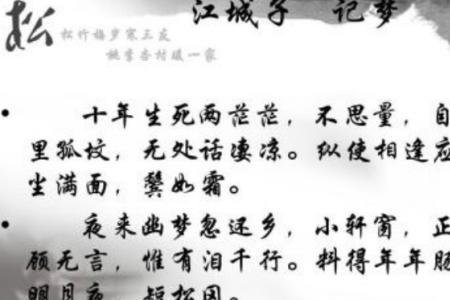 江城子 记梦
松
松竹梅岁寒三友
桃李杏村暖一家
• 十年生死两茫茫，不思量，自
里孤坟，无处话凄凉。纵使相逢应
尘满面，鬓如霜。
• 夜来幽梦忽还乡，小轩窗，正
顾无言，惟有泪千行。料得年年肠
明月夜，短松冈。